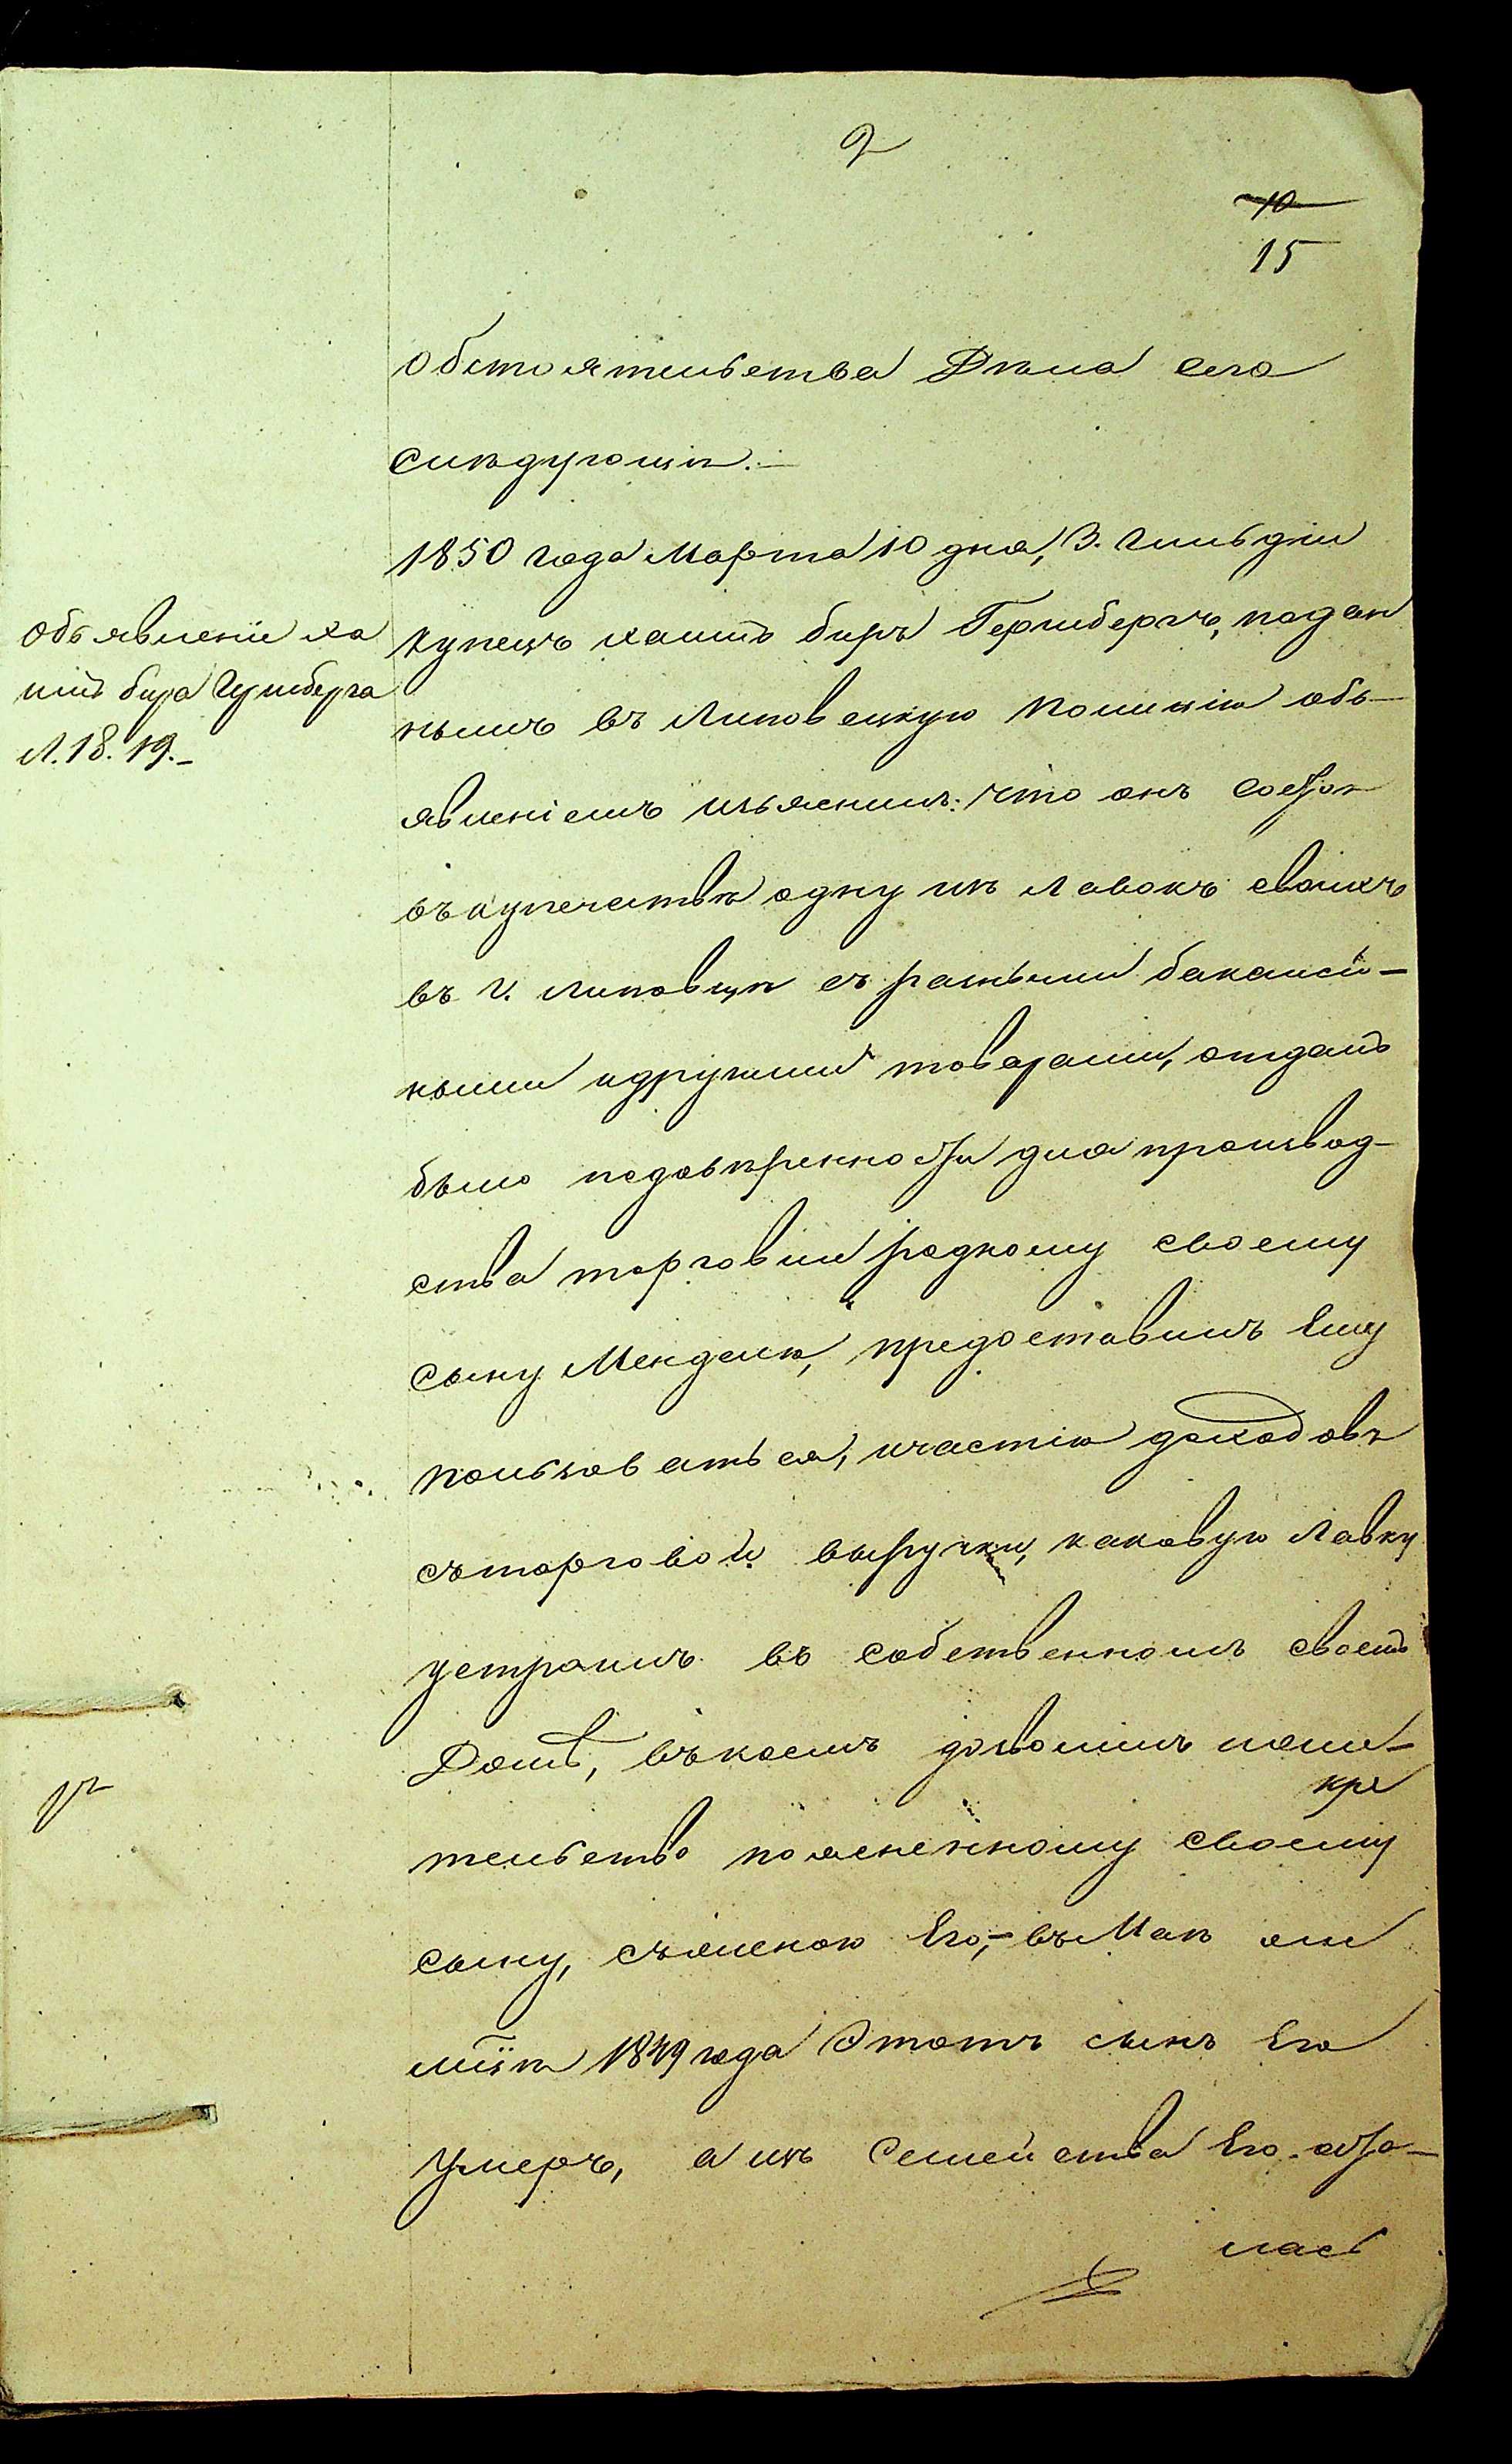 2
10
15
Обстоятельства Дѣла сего
слѣдующiя.
1850 года Марта 10 дня, 3. Гильдiи
Объявленiе Ха
купецъ Хаимъ биръ Герцбергъ, подан
имъ бира Гершберга
нымъ въ Липовецкую Полицiю объ-
Л. 18. 19.
явленiемъ изъяснилъ: что онъ состоя
въ купечествѣ одну изъ Лавокъ своихъ
въ г. Липовцѣ съ разными бакалей-
ными и другими товарами, отдалъ
было по довѣренности для производ-
ства торговли родному своему
сыну Менделю, предоставилъ Ему
пользоваться, и частiю доходовъ
съ торговой выручки, каковую Лавку
устроилъ въ собственномъ своемъ
Домѣ, въ коемъ дозволилъ и жи-
тельство поясненному своему
сыну, съ женою Его,- въ Маѣ же
мцѣ 1849 года Этотъ сынъ Его
Умеръ, а изъ Семейства Его оста-
лась